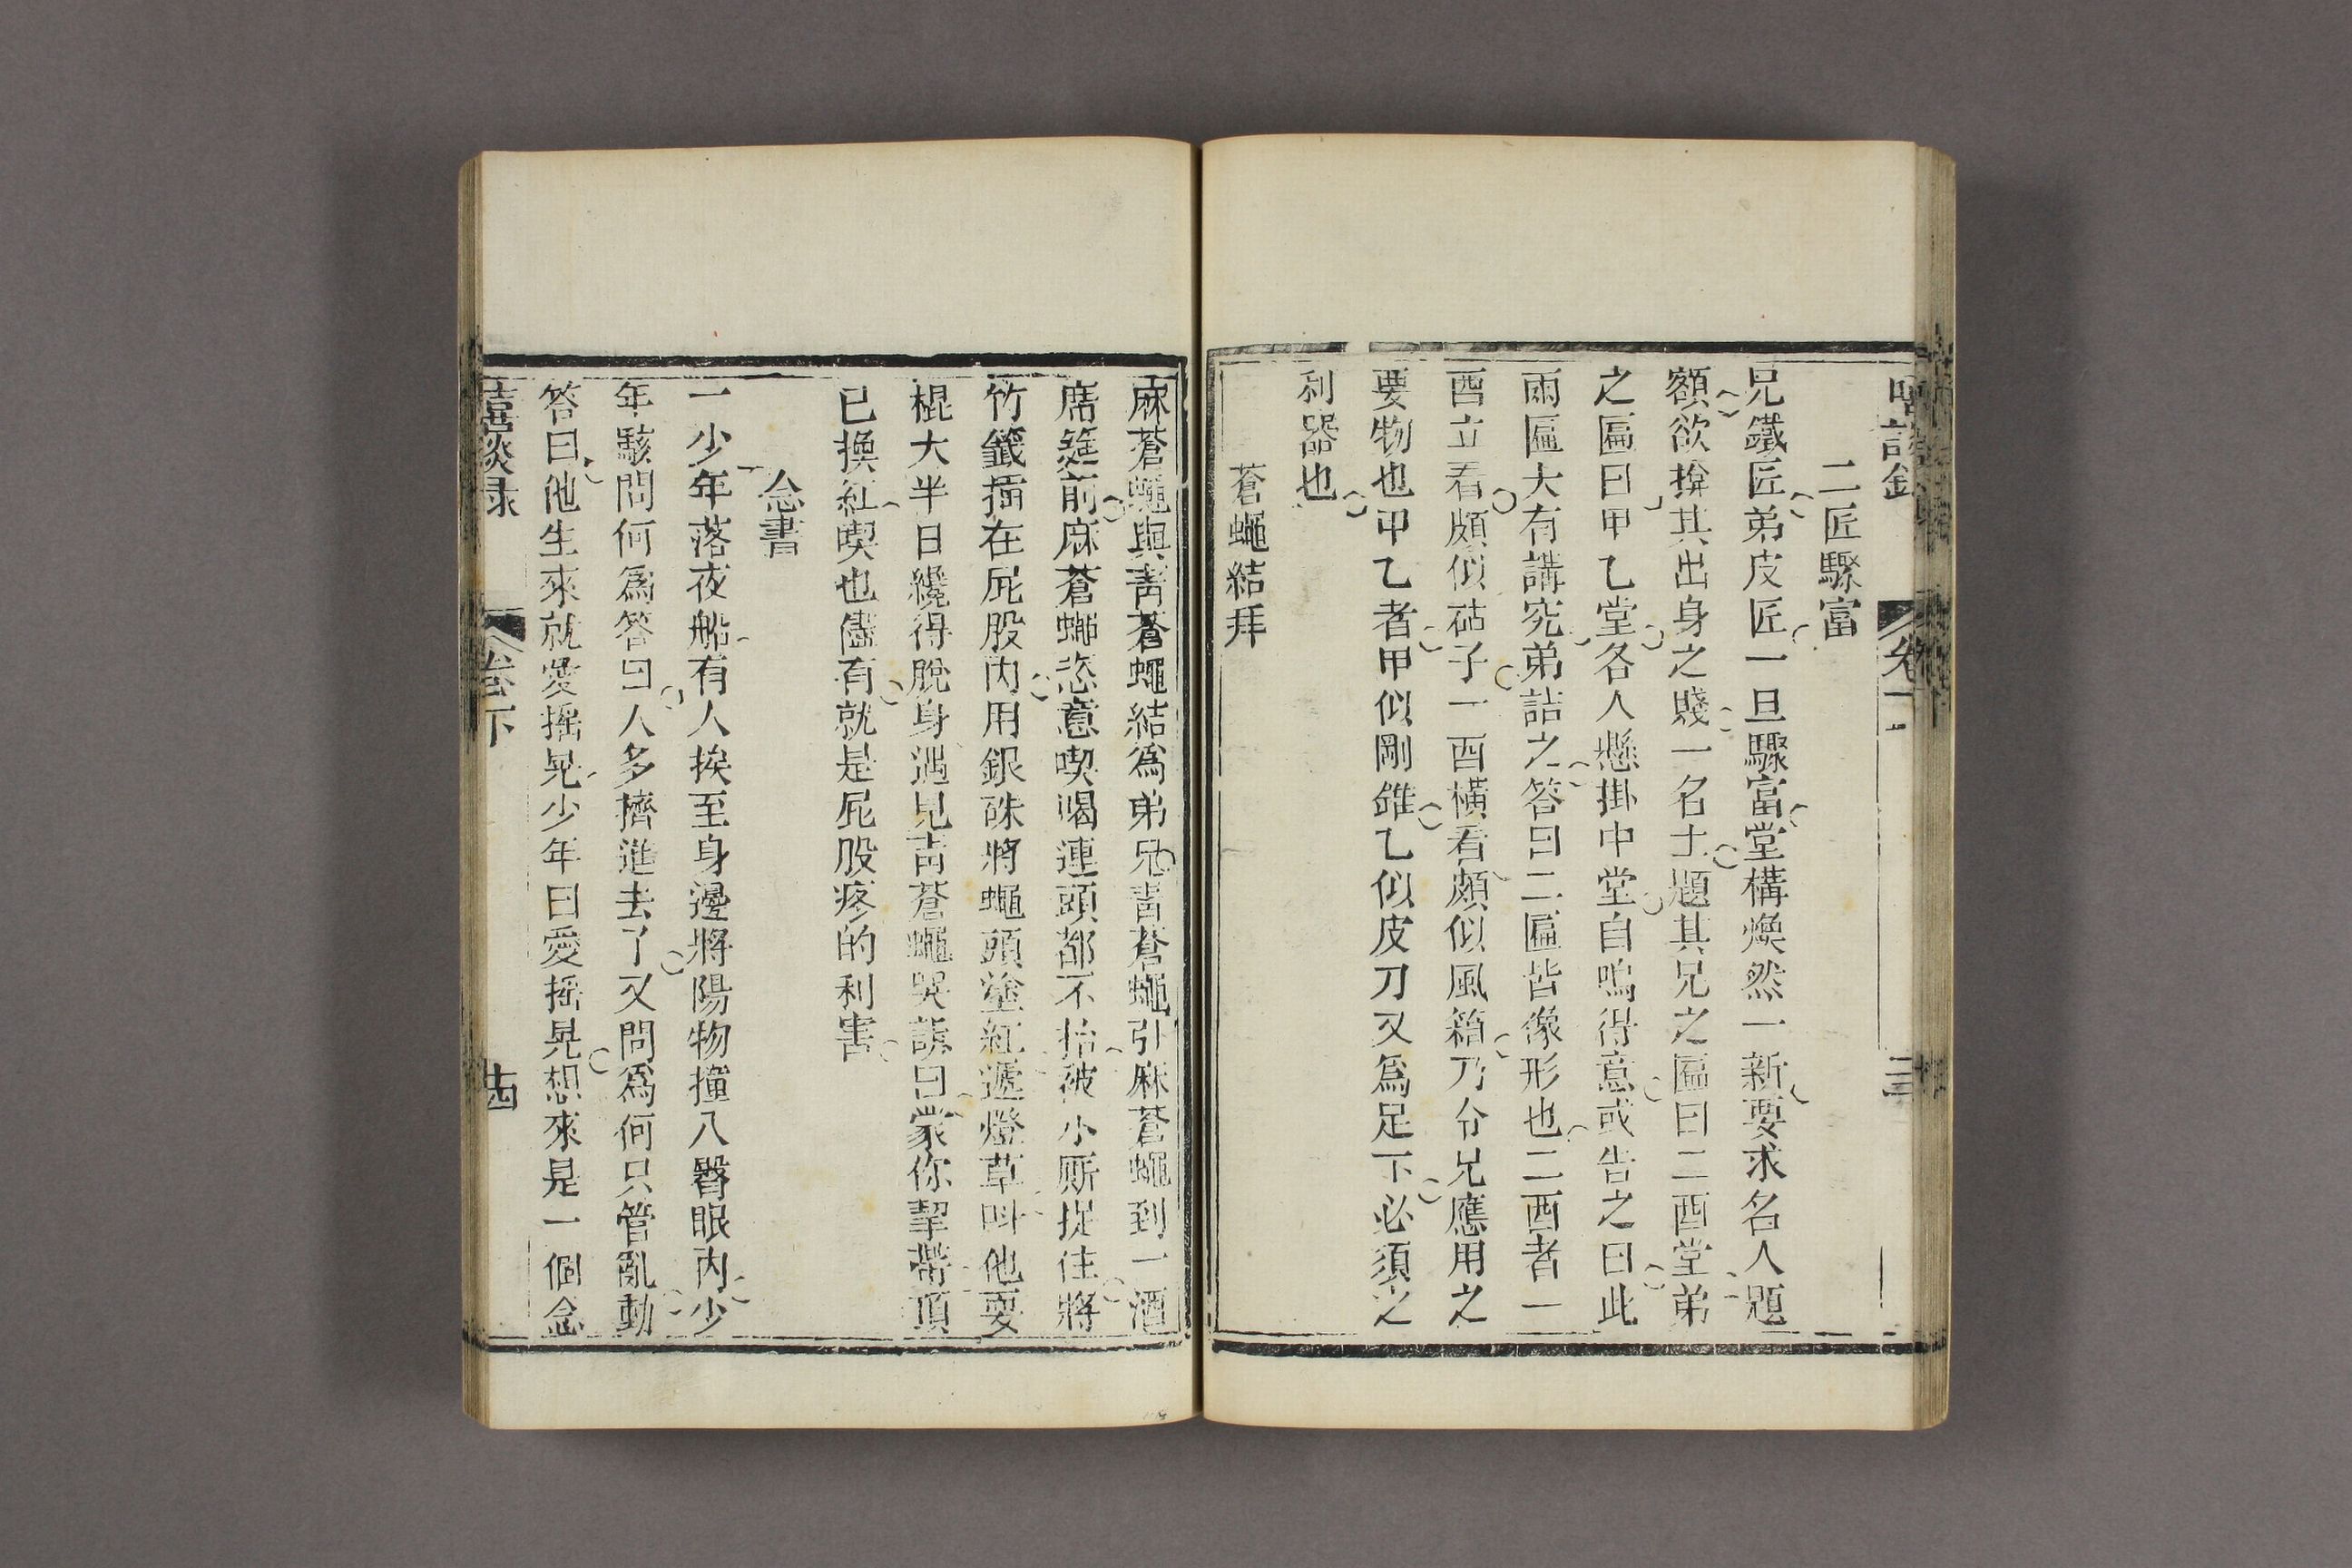 二匠驟富
兄鐵匠弟皮匠一旦驟富堂構煥然一新要求名人題
額欲揜其出身之賤一名士題其兄之匾曰二酉堂弟
之匾曰甲乙堂各人懸掛中堂自鳴得意或告之曰此
兩匾大有講究弟詰之答曰二匾皆像形也二酉者一
酉立看頗似砧子一酉橫看頗似風箱乃令兄應用之
要物也甲乙者甲似剛錐乙似皮刀又爲足下必須之
利器也
蒼蠅結拜
麻蒼蠅與青蒼蠅結爲弟兄青蒼蠅引麻蒼蠅到一酒
席筵前麻蒼蠅恣意喫喝連頭都不抬被小厮捉住將
竹籤插在屁股內用銀硃將蠅頭塗紅遞燈草叫他耍
棍大半日纔得脫身遇見青蒼蠅哭訴曰蒙你挈帶頂
已換紅喫也儘有就是屁股疼的利害
念書
一少年落夜船有人挨至身邊將陽物撞入臀眼內少
年駭問何爲答曰人多擠進去了又問爲何只管亂動
答曰他生來就愛搖晃少年曰愛搖晃想來是一個念
嘻談錄 卷下 十四